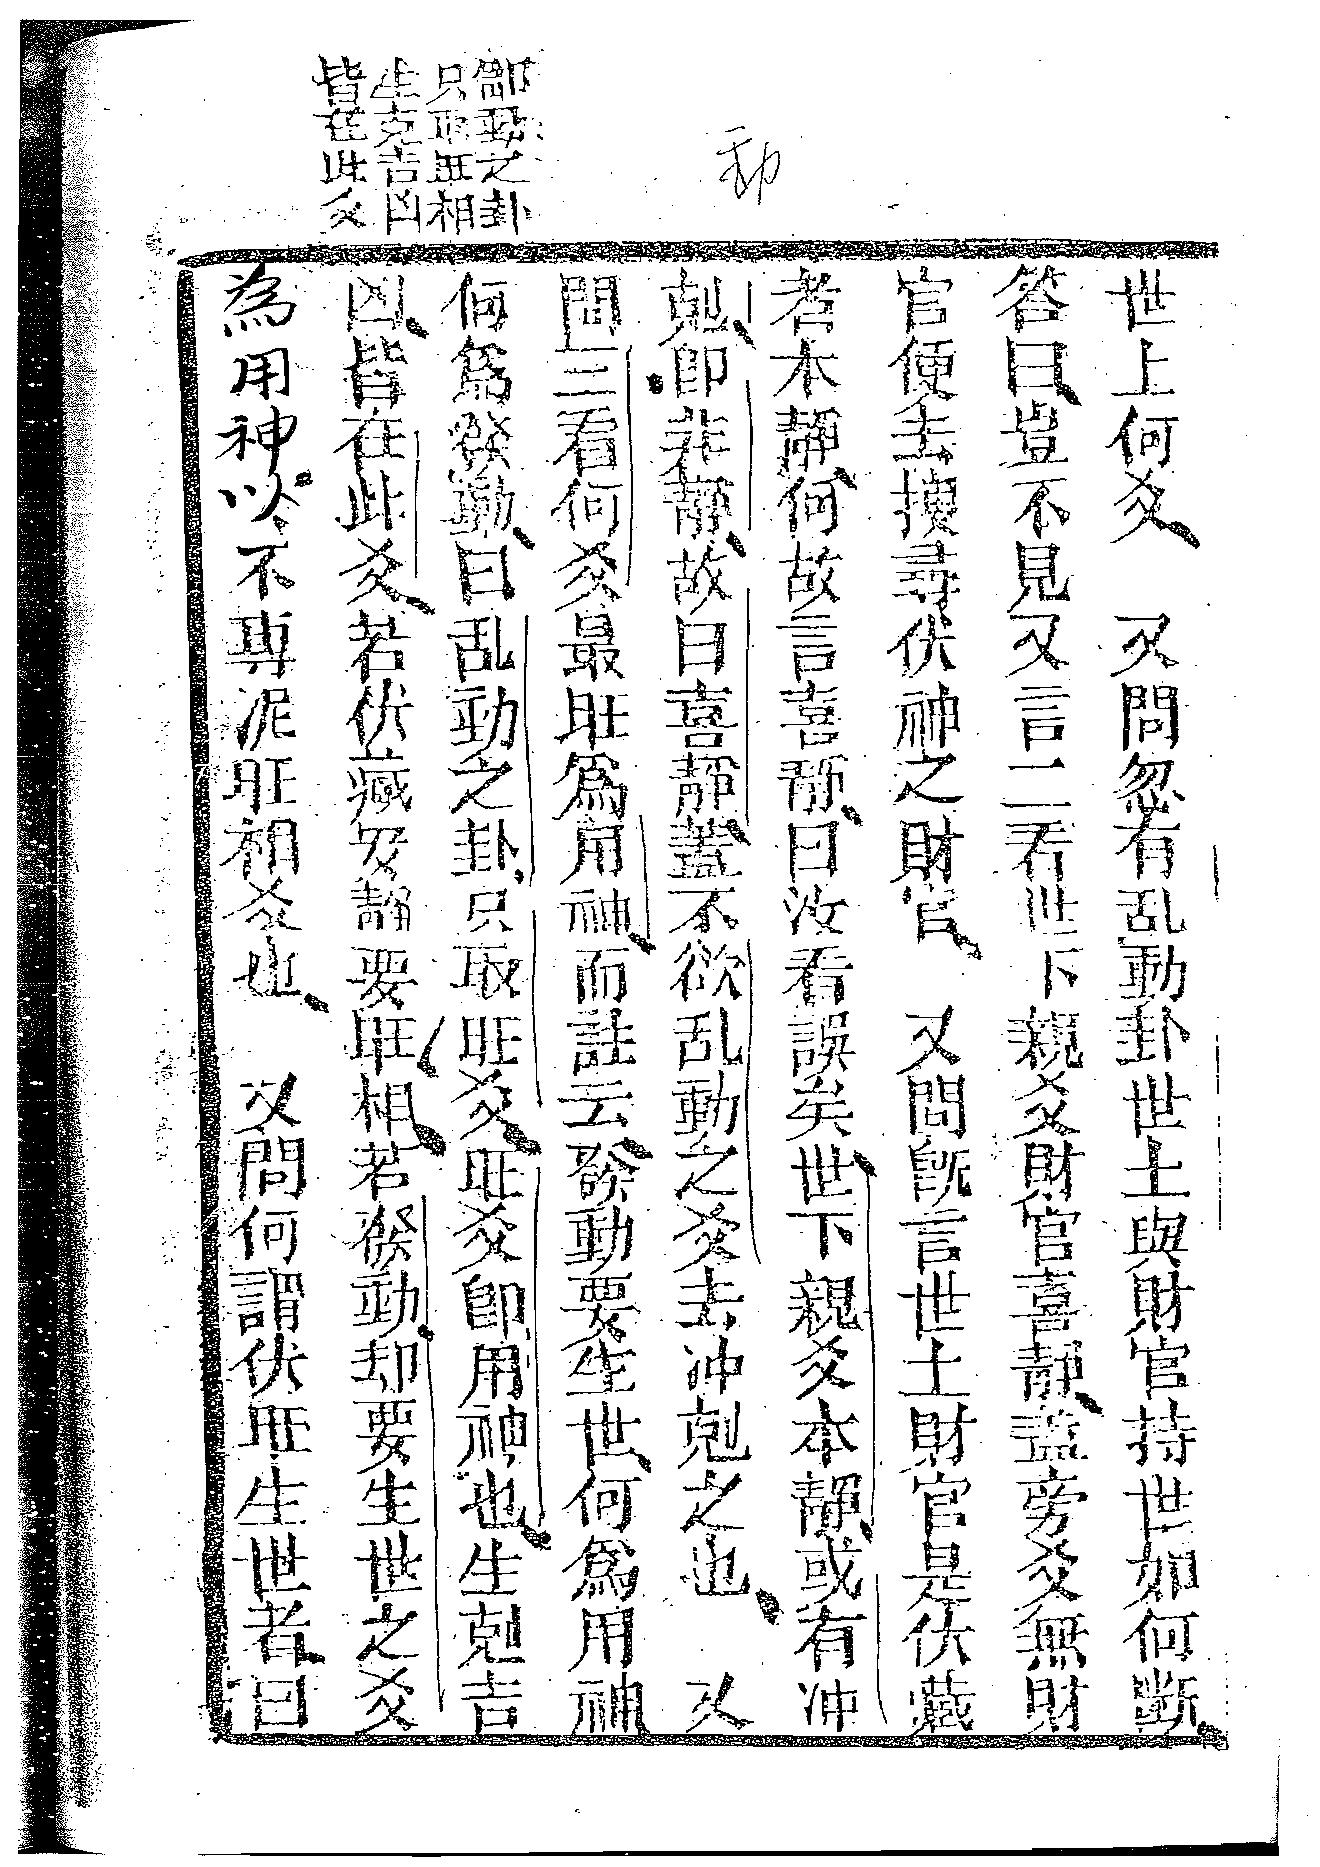 卽動之卦
只取旺相
生克吉凶
皆在此爻
動
世上何爻 又問忽有乱動卦世土與財官持世如何斷
答曰豈不見又言二看世下親爻財官喜靜盖旁爻無財
官便去搜尋伏神之財官 又問旣言世土財官是伏藏
者本靜何故言喜靜曰汝看誤矣世下親爻本靜或有冲
剋卽非靜故曰喜靜蓋不欲乱動之爻去冲剋之也 又
問三看何爻最旺爲用神而註云發動要生世何爲用神
何爲發動曰乱動之卦只取旺爻旺爻卽用神也生剋吉
凶皆在此爻若伏藏安靜要旺相若發動却要生世之爻
為用神以不專泥旺相爻也 又問何謂伏旺生世者曰